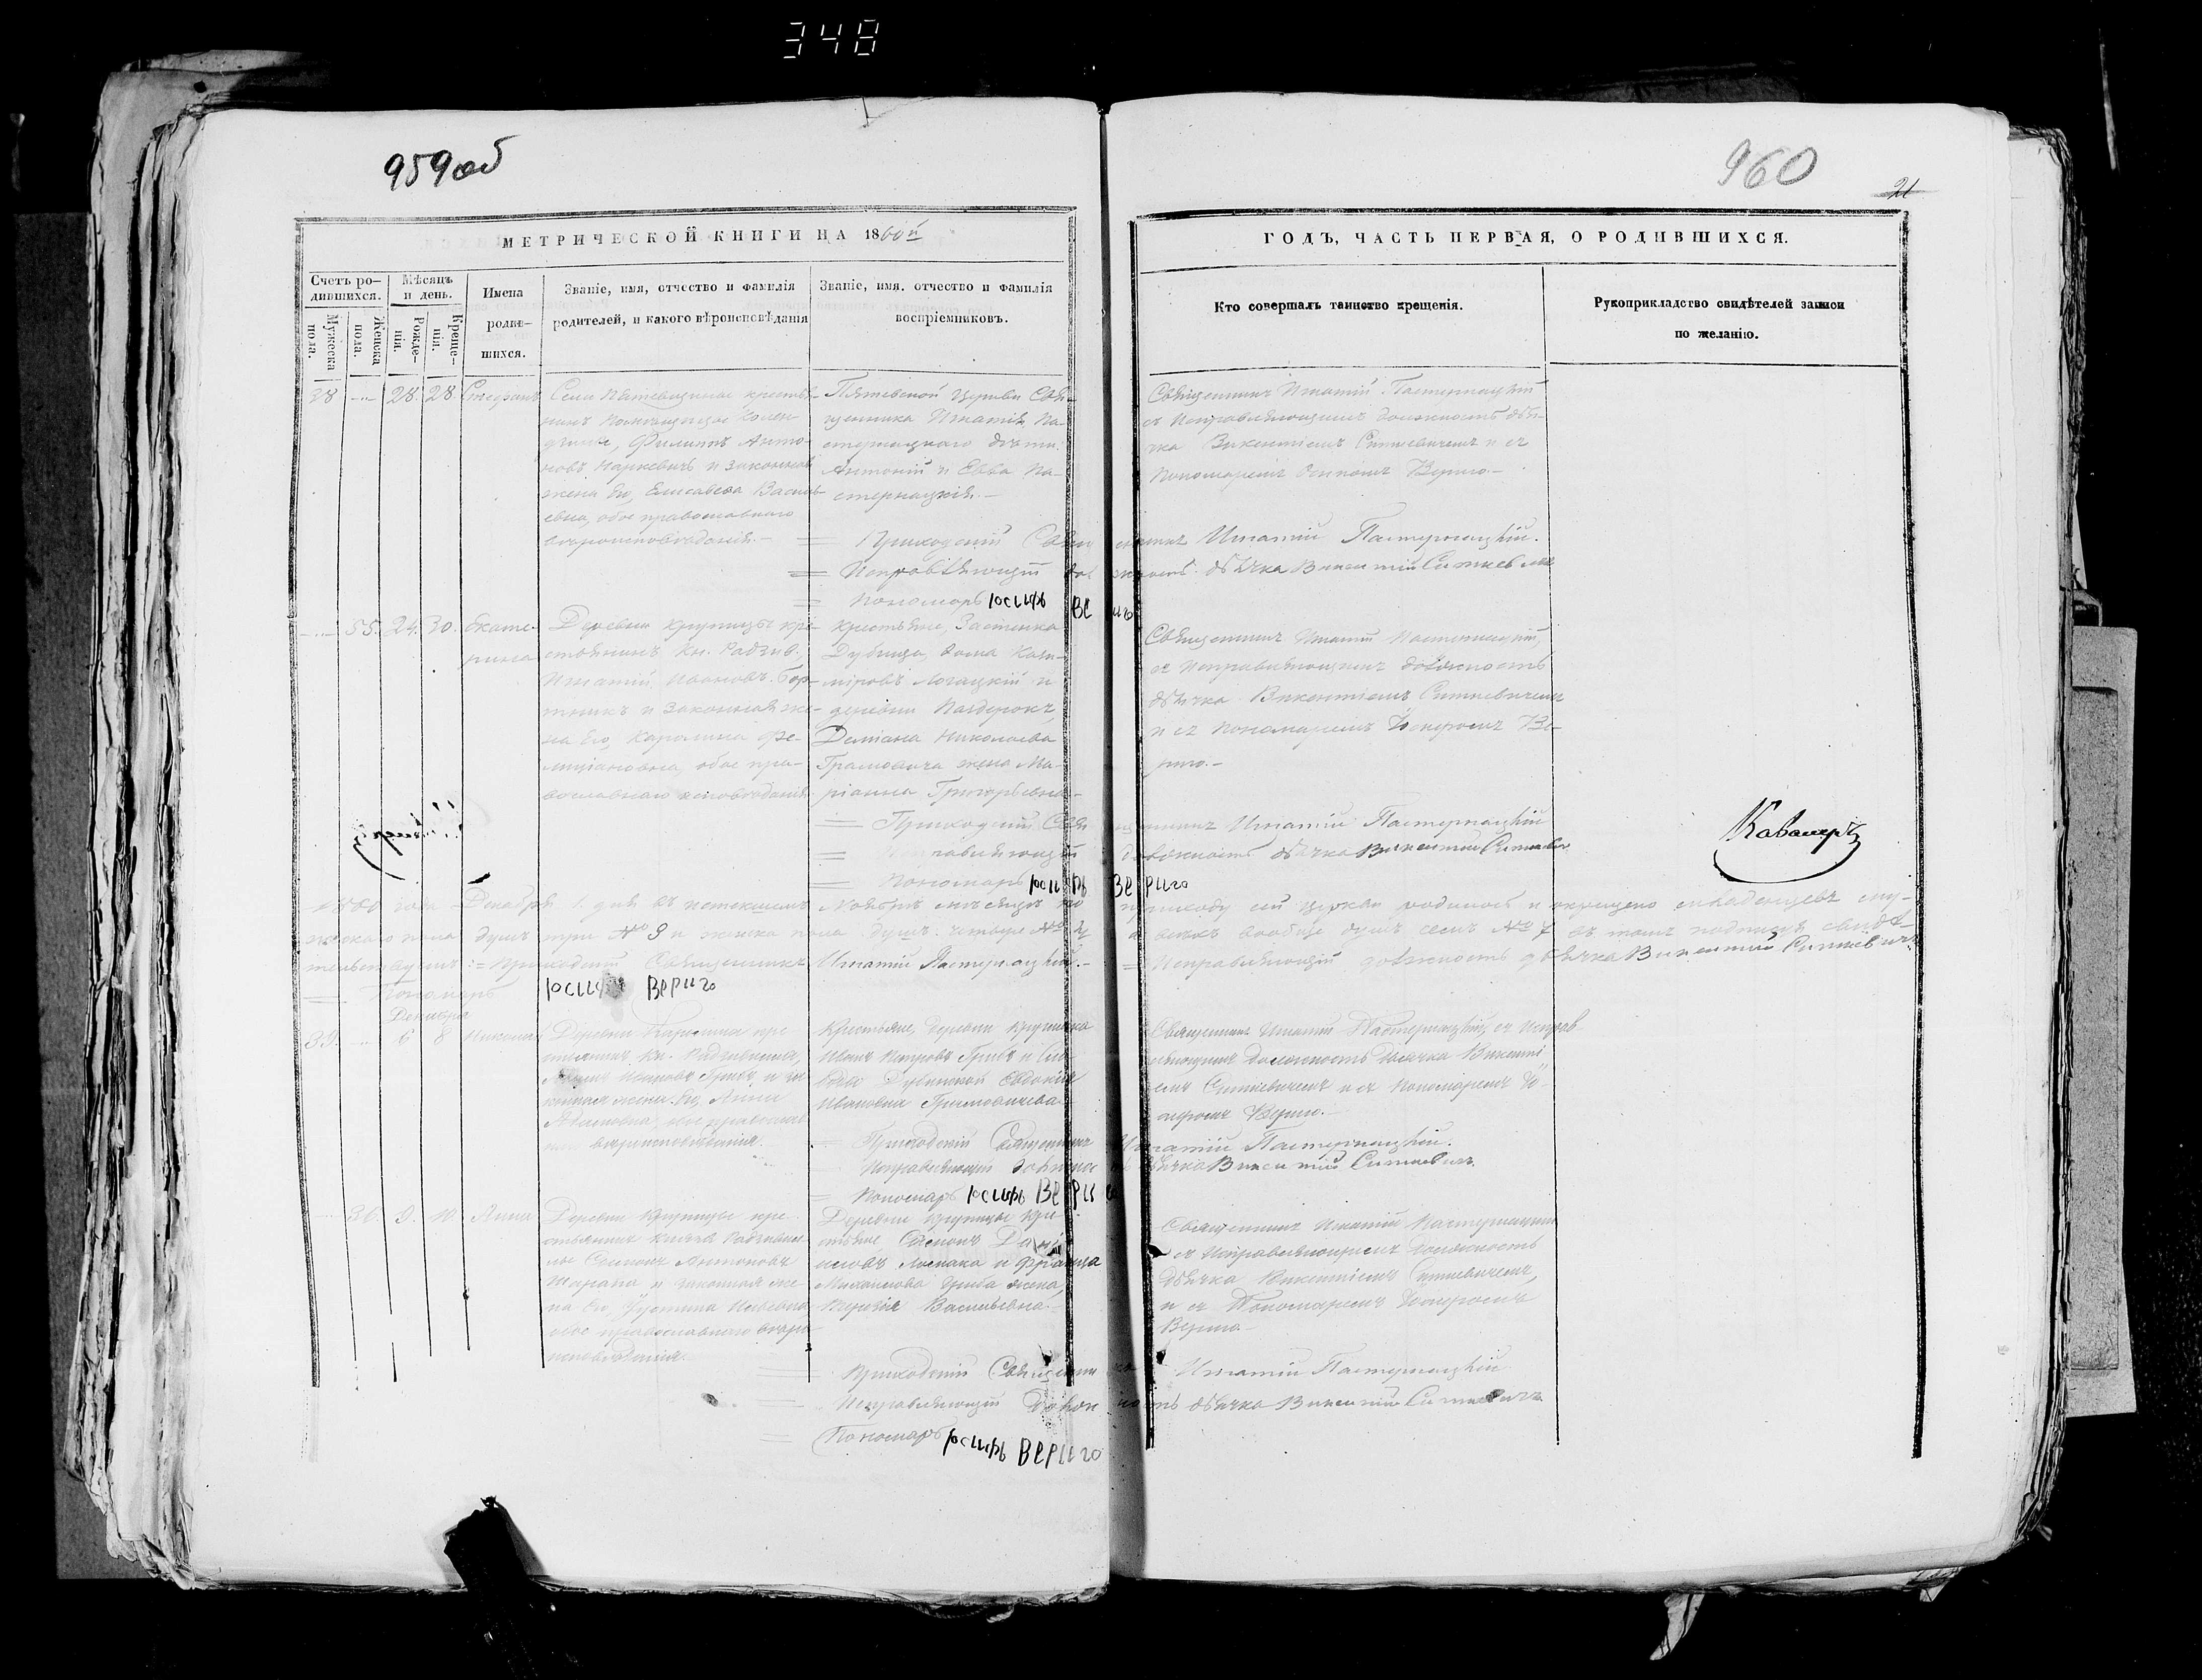 348
959об
960
21
МЕТРИЧЕСКОЙ КНИГИ НА 1860й
ГОДЪ, ЧАСТЬ ПЕРВАЯ, О РОДИВШИХСЯ.
Счетъ ро-
дившихся.
Мужеска
пола.
Женска
пола.
Мѣсяцъ
и день.
Рожде-
нія.
Креще-
нія.
Имена
родив-
шихся.
Званіе, имя, отчество и фамилія
родителей, и какого вѣроисповѣданія
Званіе, имя, отчество и фамилія
воспріемниковъ.
Кто совершалъ таинство крещенія.
Рукоприкладство свидѣтелей записи
по желанію.
38 28. 28. Стефанъ
Филиппъ Анто-
новъ Наркевичъ и законная
жена его, Елисавета Василь-
евна, обое православнаго
вѣроисповѣданія.-
Пятевской Церкви Свя-
щенника Игнатія Па-
стернацкаго дѣти:
Антоній и Евва Па-
стернацкія.-
Священникъ Игнатій Пастернацкій
съ Исправляющимъ должность дья-
чка Викентіемъ Ситкевичемъ и съ
Пономаремъ Осипомъ Вериго.-
Приходскій Священникъ Игнатій Пастернацкій.
Исправляющій должность дьячка Викентій Ситкевичъ
Пономарь Іосифъ Вериго
55. 24. 30. Екате-
рина
Деревни Крупицы кре-
стьянинъ Кн. Радзив.
Игнатій Ивановъ Бор-
тникъ и законная же-
на его, Каролина Фе-
лиціановна, обое пра-
вославнаго исповѣданія.
Крестьяне, Застенка
Дубница, Фома Кази-
міровъ Логацкій и
деревни
Даміана Николаева
Грамовича жена Ма-
ріанна Григорьевна.-
Священникъ Игнатій Пастернацкій,
съ Исправляющимъ должность
дьячка Викентіемъ Ситкевичемъ
и съ Пономаремъ Іосифомъ Ве-
риго.-
Приходскій Священникъ Игнатій Пастернацкій
Исправляющій должность дьячка Викентій Ситкевичъ
Пономарь Іосифъ Вериго
Кавалеръ
1860 года Декабря 1. дня въ истекшемъ Ноябрѣ мѣсяцѣ по приходу сей церкви родилось и окрещено младенцевъ му-
жескаго пола душъ три № 3 и женска пола душъ четыре № 4 а всехъ вообще душъ семь № 7 въ томъ подписомъ свидѣ-
тельствуемъ:= Приходскій Священникъ Игнатій Пастернацкій.- = Исправляющій должность дьячка Викентій Ситкевичъ
Пономарь Іосифъ Вериго
Декабря
39. 6 8 Николай
стьянинъ Кн. Радзивилла,
Петровъ Грибъ и за-
конная жена его, Анна
Адамовна, обое православ-
наго вѣроисповѣданія.
Крестьяне, деревни
Иванъ Петровъ Грибъ и
Дубинской Евдокія
Ивановна Грамовичева.
Священникъ Игнатій Пастернацкій, съ Исправ-
ляющимъ должность дьячка Викенті-
емъ Ситкевичемъ и съ Пономаремъ Іо-
сифомъ Вериго.-
Приходскій Священникъ Игнатій Пастернацкій.
Исправляющій должность дьячка Викентій Ситкевичъ.
Пономарь Іосифъ Вериго
36. 9. 10. Анна
Деревни Крупицы кре-
стьянинъ Князя Радзивил-
ла Симонъ Антоновъ
и законная же-
на его, Іустина
обое православнаго вѣро-
исповѣданія.
Деревни Крупицы кре-
стьяне Симонъ
и Франца
Михайлова Гриба жена,
Терезія Васильевна.
Священникъ Игнатій Пастернацкій
съ Исправляющимъ должность
дьячка Викентіемъ Ситкевичемъ,
и съ Пономаремъ Іосифомъ
Вериго.
Приходскій Священникъ Игнатій Пастернацкій
Исправляющій должность дьячка Викентій Ситкевичъ
Пономарь Іосифъ Вериго